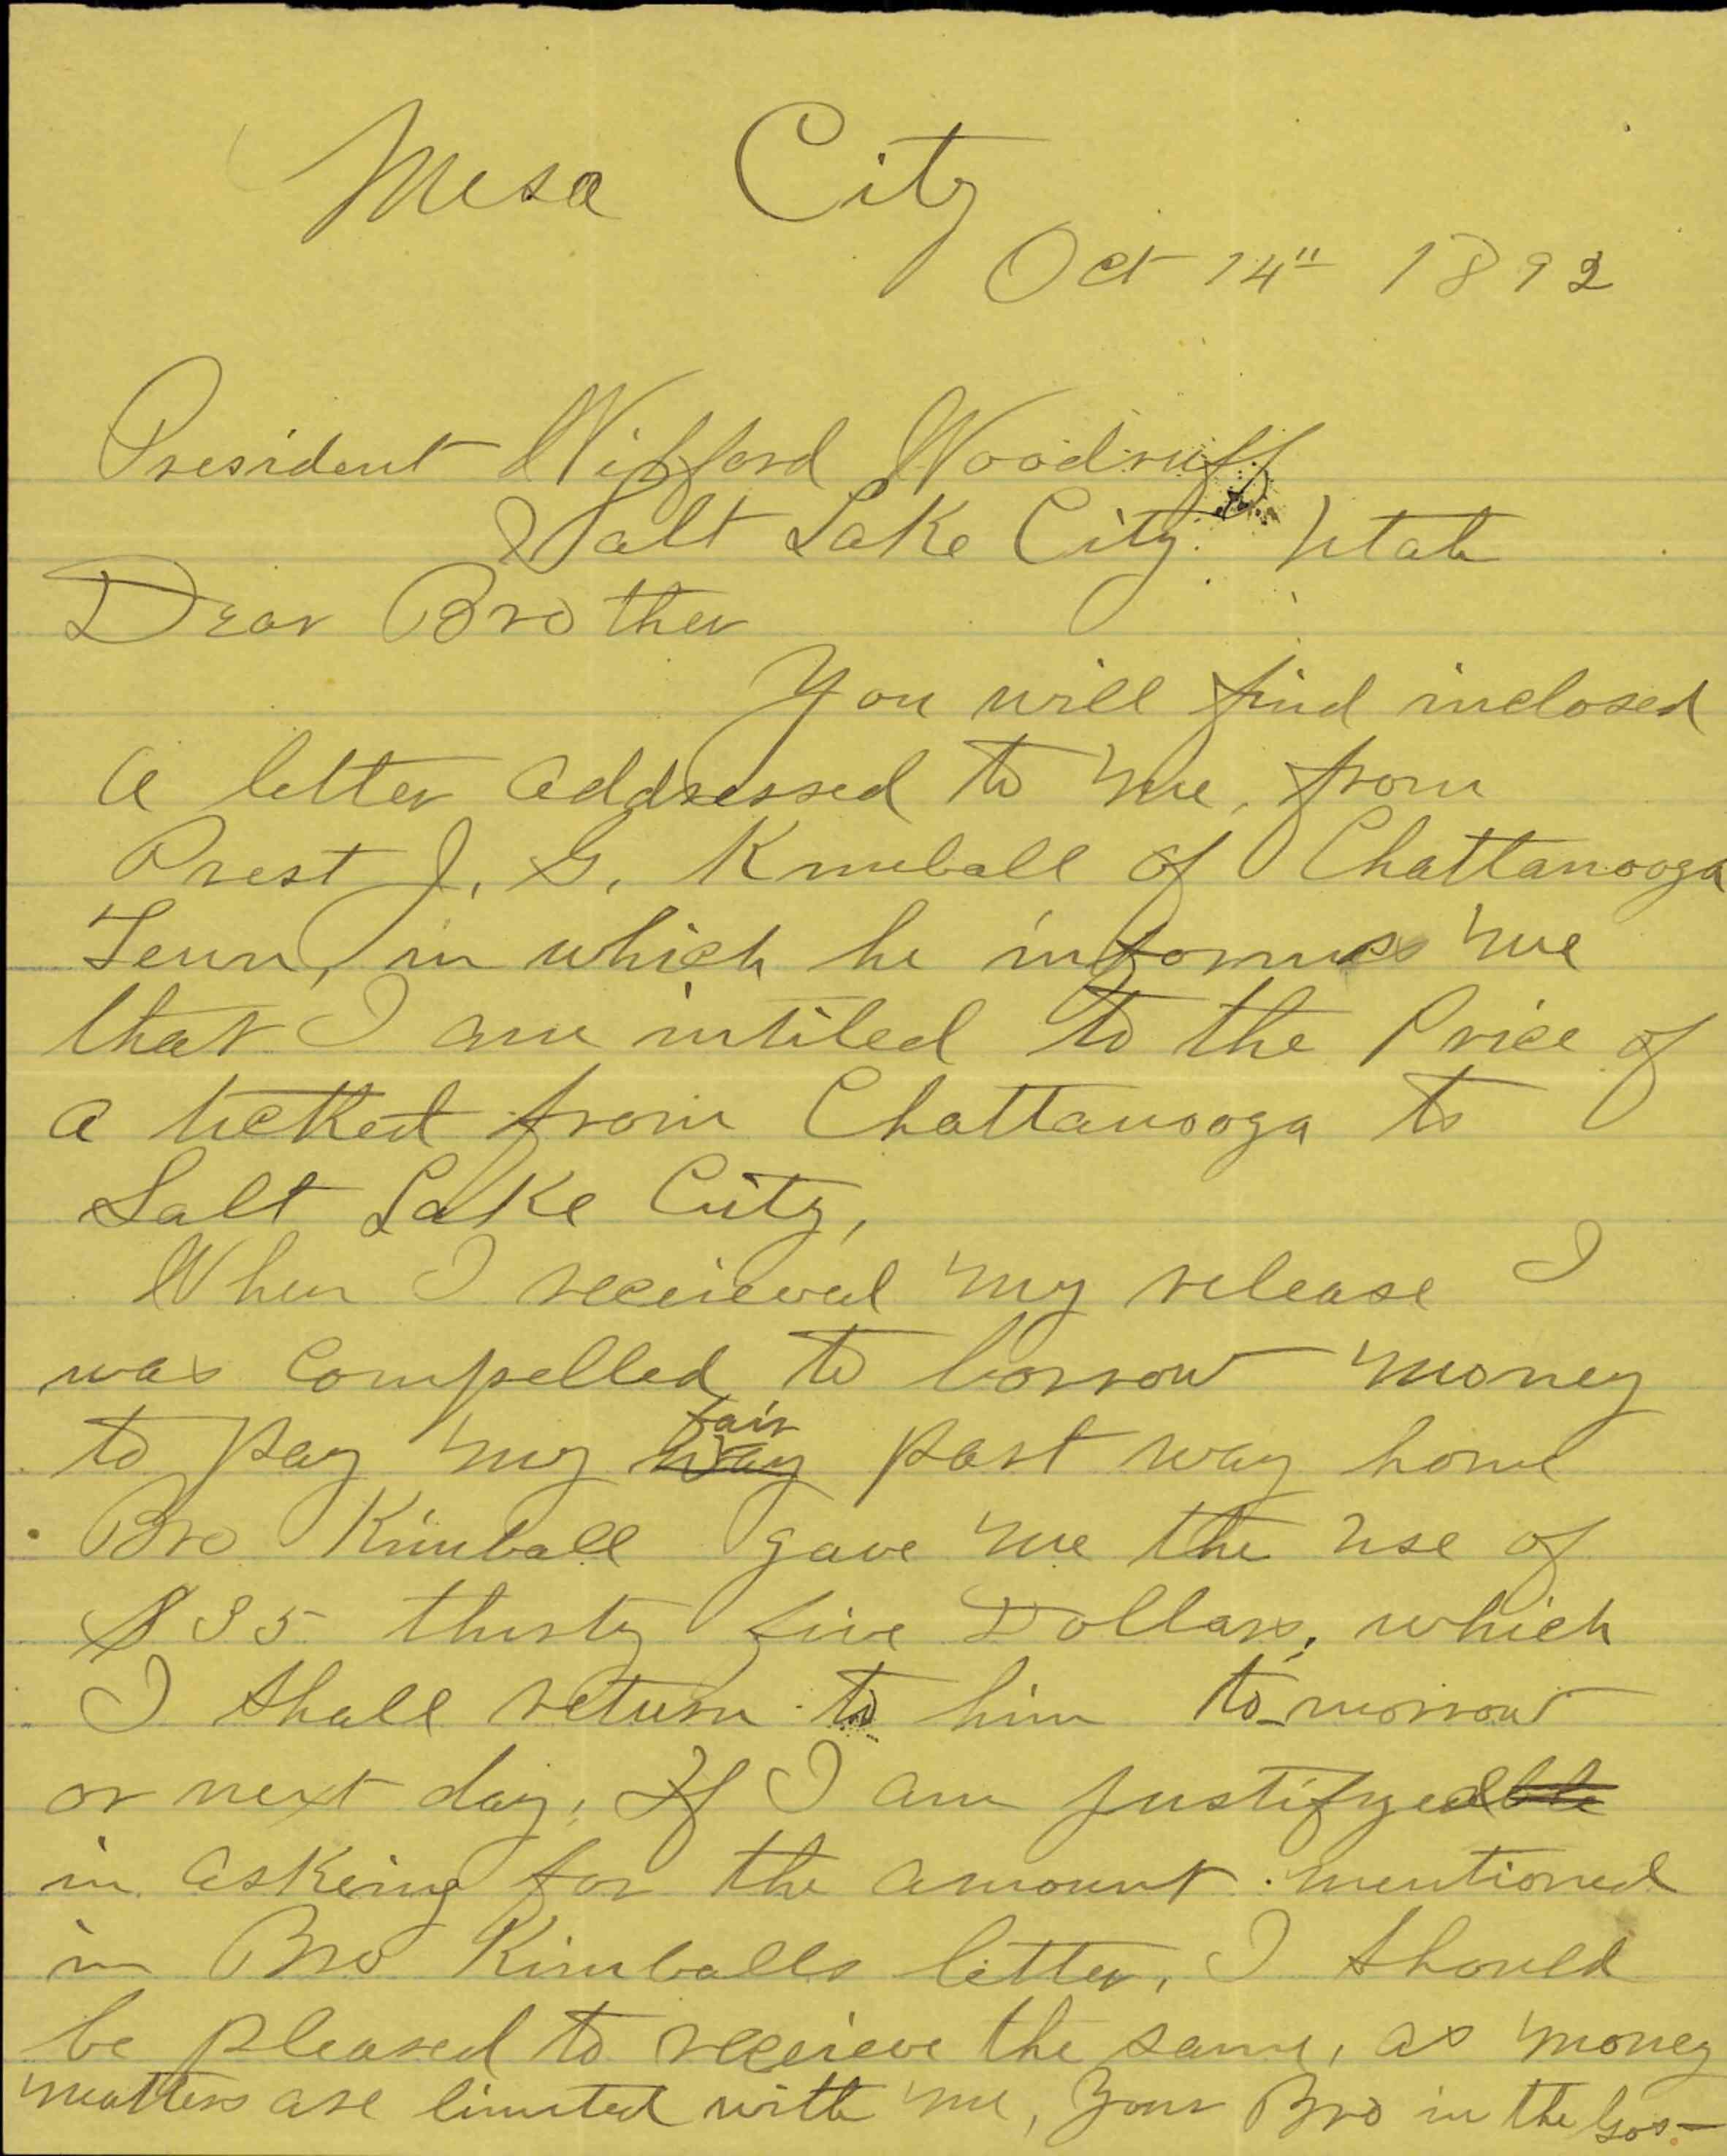 Mesa City
Oct 14" 1892
President Wifford Woodruff
Salt Lake City. Utah
Dear Brother
You will find inclosed
a letter addressed to me, from
Prest J. G. Kimball of Chattanooga
Tenn, in which he informes me
that I am intiled to the Price of
a ticked from Chattanooga to
Salt Lake City,
When I receieved my release I
was compelled to borrow money
to pay my way fair part way home
Bro Kimball gave me the use of
$35 thirty five Dollars, which
I shall return to him to-morrow
or next day, If I am justifyedble
in asking for the amount mentioned
in Bro Kimballs letter, I should
be pleased to receieve the same, as money
matters are limited with me, Your Bro in the Gos-